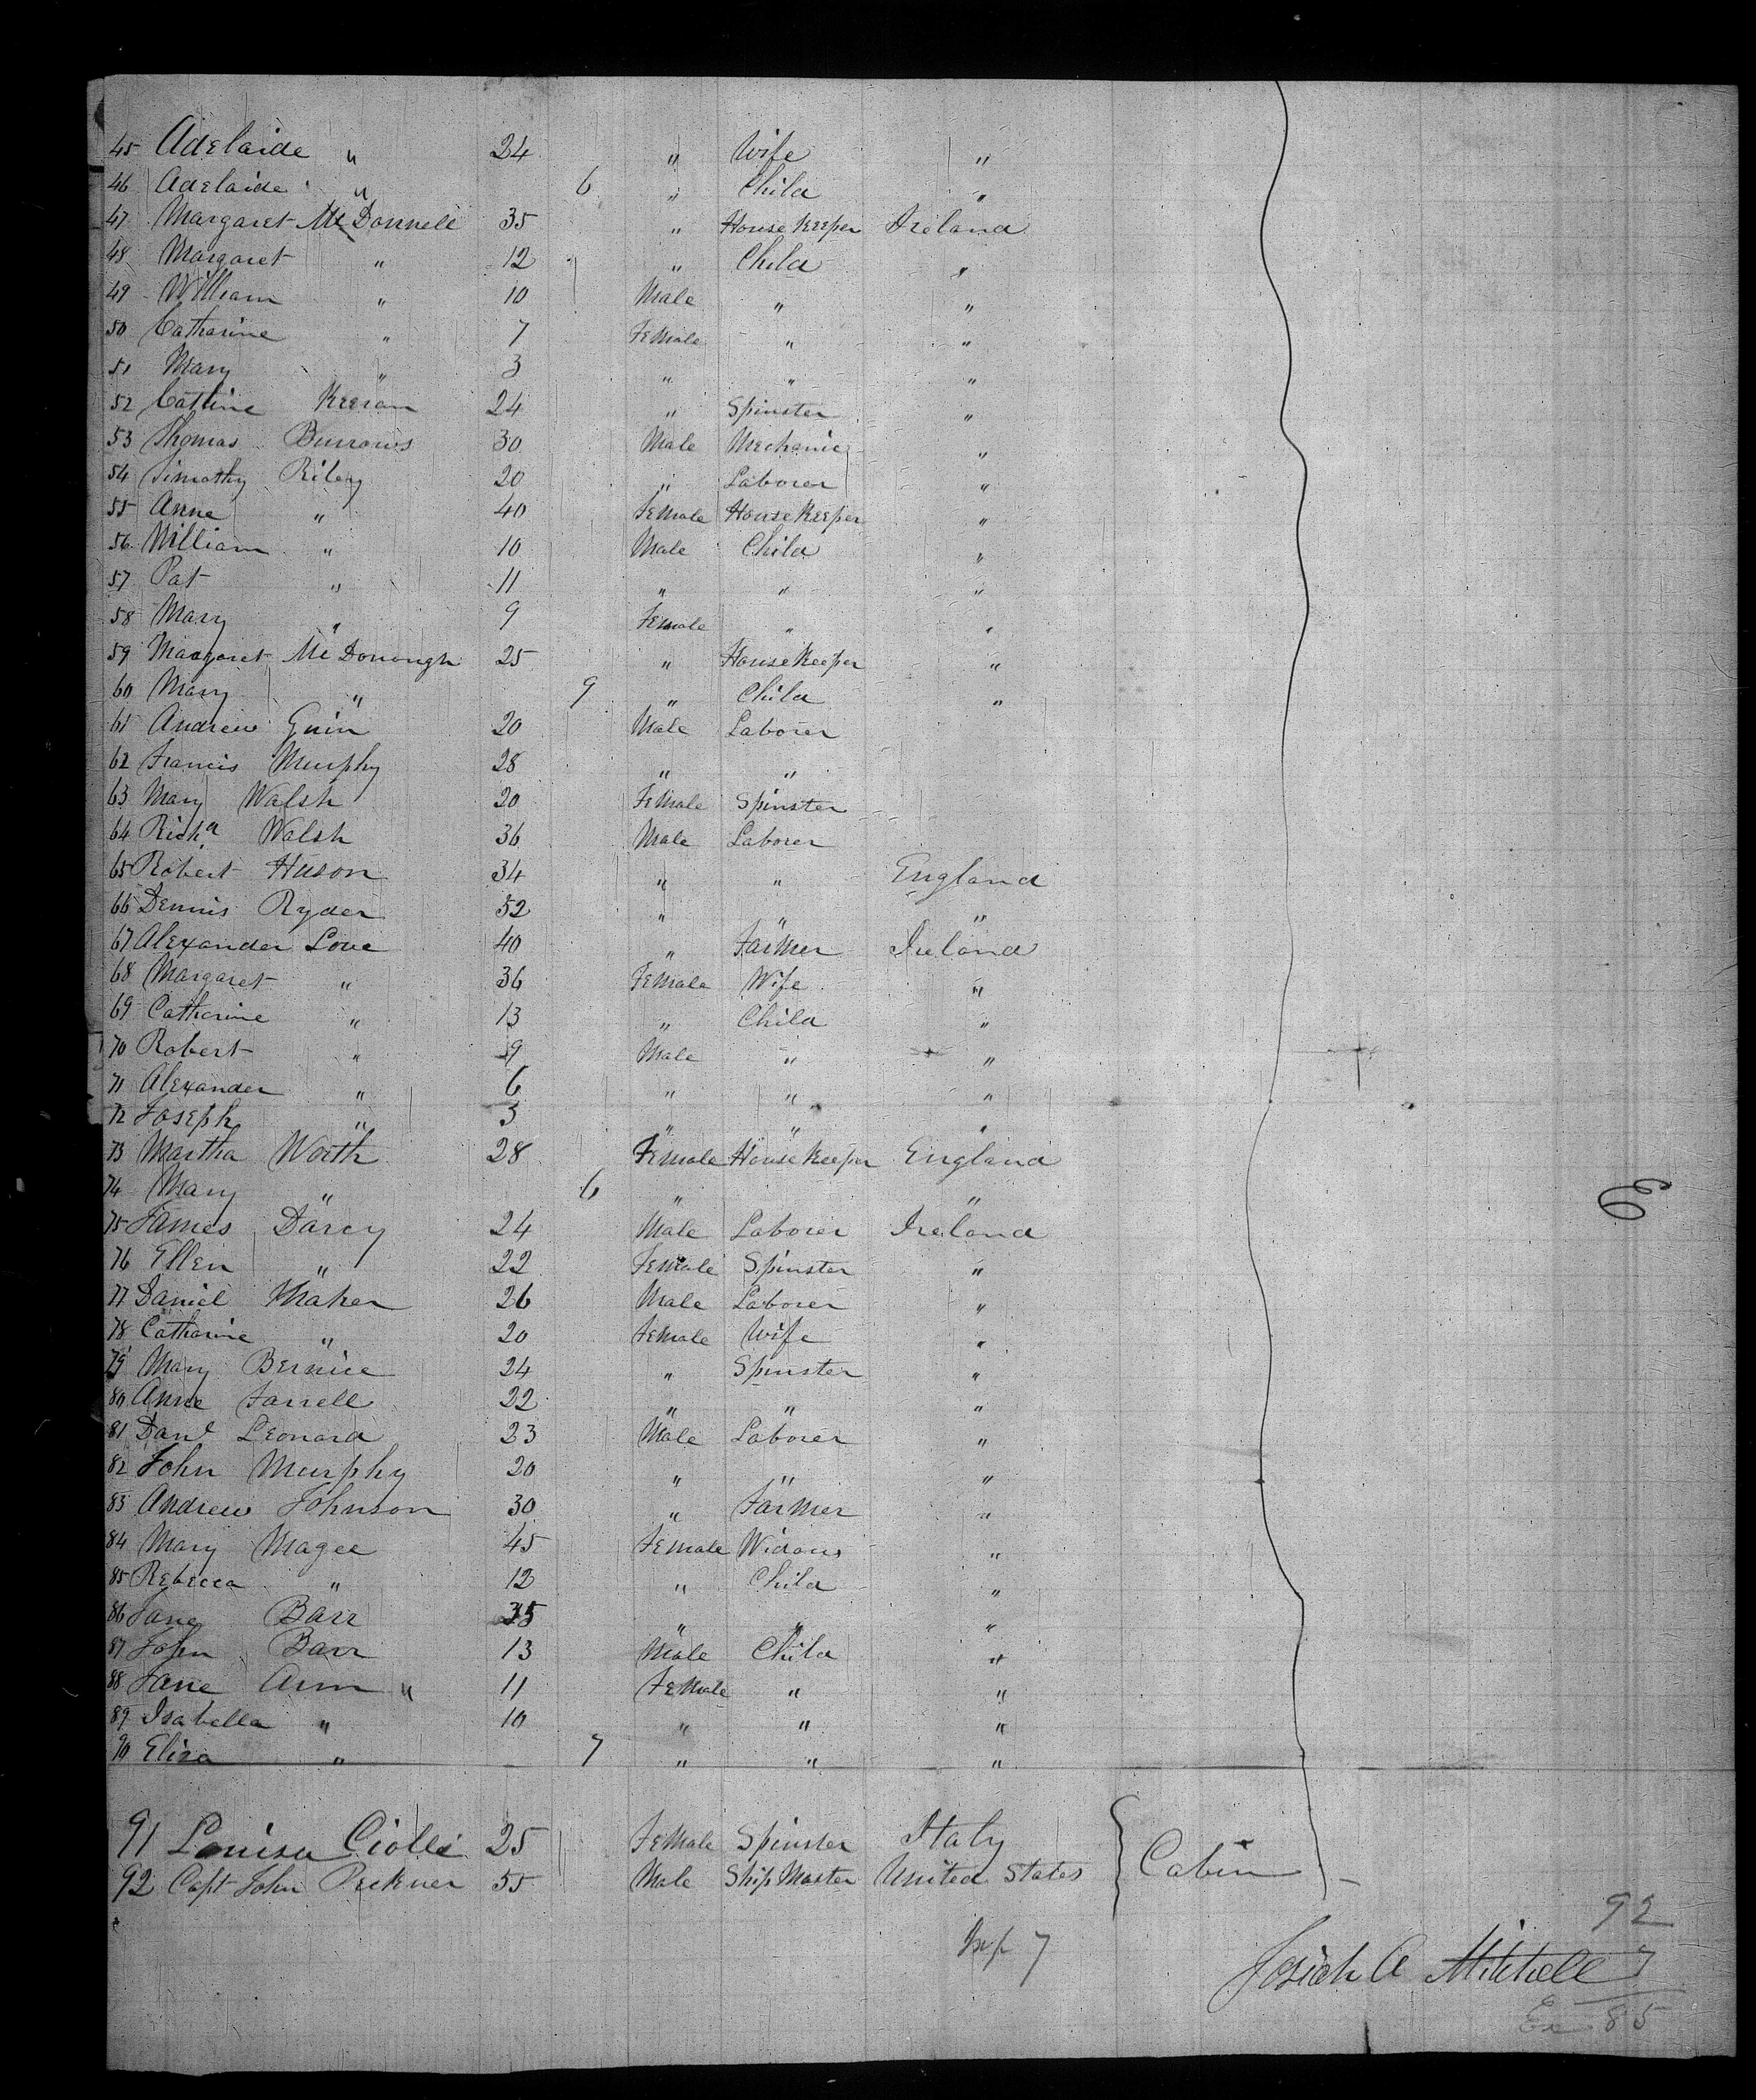 45 Adelaide " 24 " Wife "
46 Adelaide " 6 " Child "
47 Margaret Mc Donnell 35 " House Keeper Ireland
48 Margaret " 12 " Child "
49 William " 10 Male " "
50 Catharine " 7 Female " "
51 Mary " 3 " " "
52 Cathine Keeran 24 " Spinster "
53 Thomas Burrows 30 Male Mechanic "
54 Timothy Riley 20 " Laborer "
55 Anne " 40 Female House Keeper "
56 William " 10 Male Child "
57 Pat " 11 " " "
58 Mary " 9 Female " "
59 Margaret Mc Donough 25 " House Keeper "
60 Mary " 9 " Child "
61 Andrew Guin 20 Male Laborer
62 Francis Murphy 28 " "
63 Mary Walsh 20 Female Spinster
64 Richd Walsh 36 Male Laborer
65 Robert Huson 34 " " England
66 Dennis Ryder 52 " " "
67 Alexander Love 40 " Farmer Ireland
68 Margaret " 36 Female Wife "
69 Catharine " 13 " Child "
70 Robert " 9 Male " "
71 Alexander " 6 " " "
72 Joseph " 3 " " "
73 Martha Worth 28 Female House Keeper England
74 Mary " 6 " "
75 James Darcy 24 Male Laborer Ireland
76 Ellen " 22 Female Spinster "
77 Daniel Maher 26 Male Laborer "
78 Catharine " 20 Female Wife "
79 Mary Bernice 24 " Spinster "
80 Anne Farrell 22 " " "
81 Danl Leonard 23 Male Laborer "
82 John Murphy 20 " " "
83 Andrew Johnson 30 " Farmer "
84 Mary Magee 45 Female Widow "
85 Rebecca " 12 " Child "
86 Jane Barr 35 " " "
87 John Barr 13 Male Child "
88 Jane Ann " 11 Female " "
89 Isabella " 10 " " "
90 Eliza " 7 " " "
91 Louisa Ciolli 25 Female Spinster Italy
92 Capt John Peckner 55 Male Ship Master United States Cabin
92
7 7
Josiah A Mitchell
85